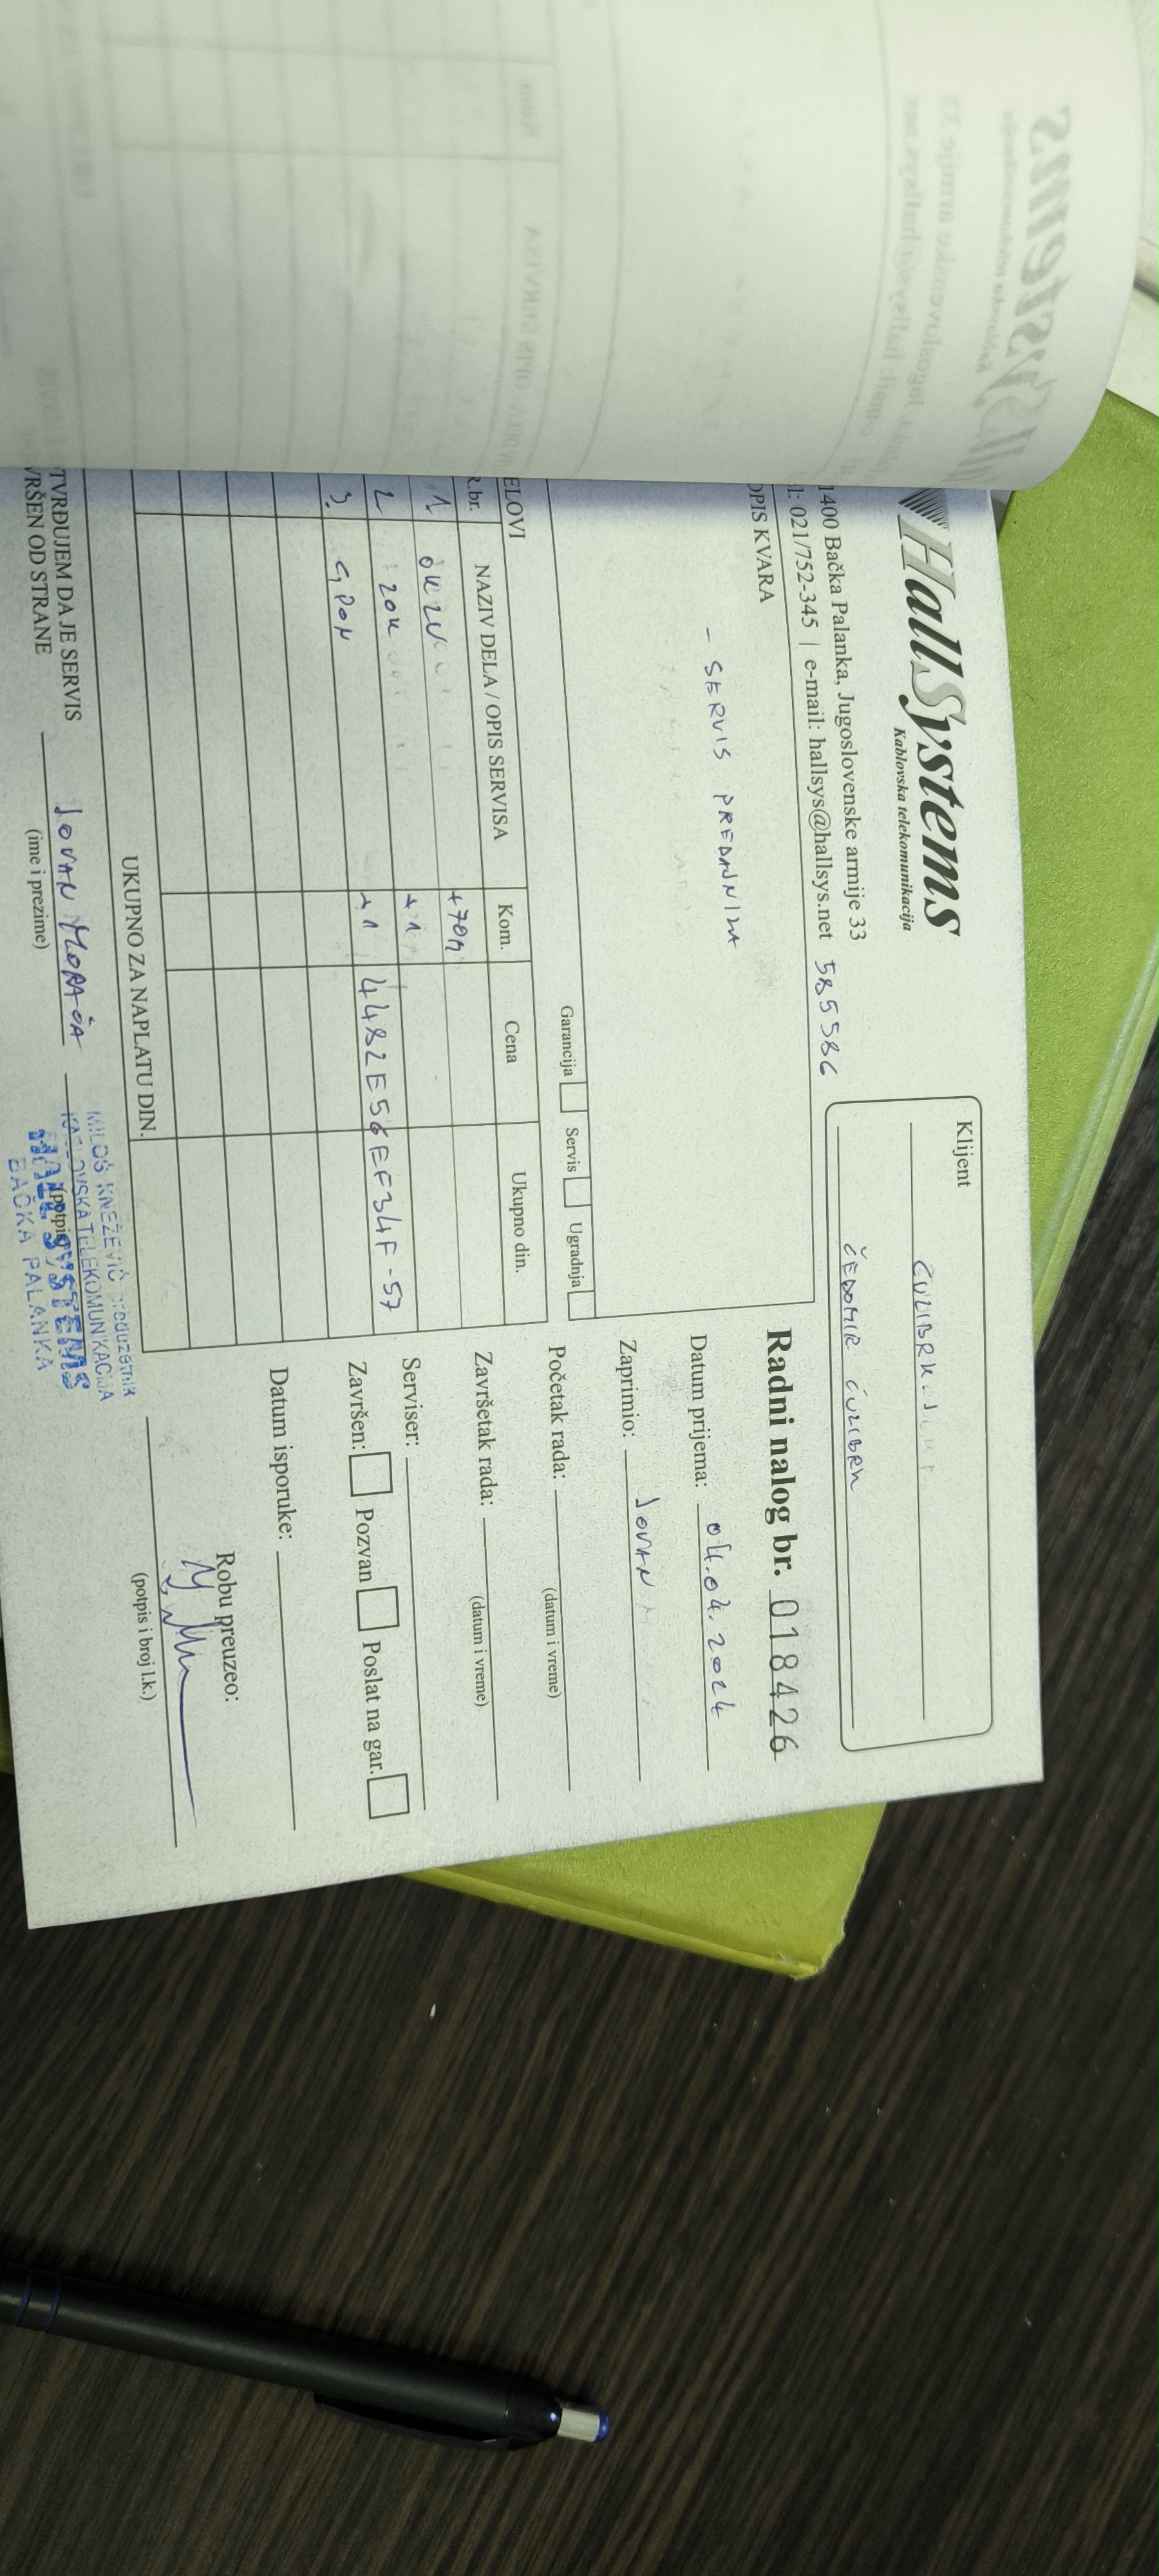 HallSystems
Kablovska telekomunikacija
1400 Bačka Palanka, Jugoslovenske armije 33
l: 021/752-345 | e-mail: hallsys@hallsys.net 585586
Klijent
ČEDOMIR ĆULIBRK
OPIS KVARA
- SERVIS PREDAJNIKA
Garancija Servis Ugradnja
Radni nalog br. 018426
Datum prijema: 04.04.2024
Zaprimio: JOVAN
Početak rada:
(datum i vreme)
Završetak rada:
(datum i vreme)
Serviser:
Završen: Pozvan Poslat na gar.
Datum isporuke:
Robu preuzeo:
(potpis i broj l.k.)
ELOVI
R.br. NAZIV DELA / OPIS SERVISA Kom. Cena Ukupno din.
1 +70m
2 ZOK +1
3. GPON +1 4482E56EF34F-57
UKUPNO ZA NAPLATU DIN.
TVRĐUJEM DA JE SERVIS
VRŠEN OD STRANE JOVAN MORAČA
(ime i prezime)
(potpis)
MILOŠ KNEŽEVIĆ preduzetnik
KABLOVSKA TELEKOMUNIKACIJA
HALL SYSTEMS
BAČKA PALANKA